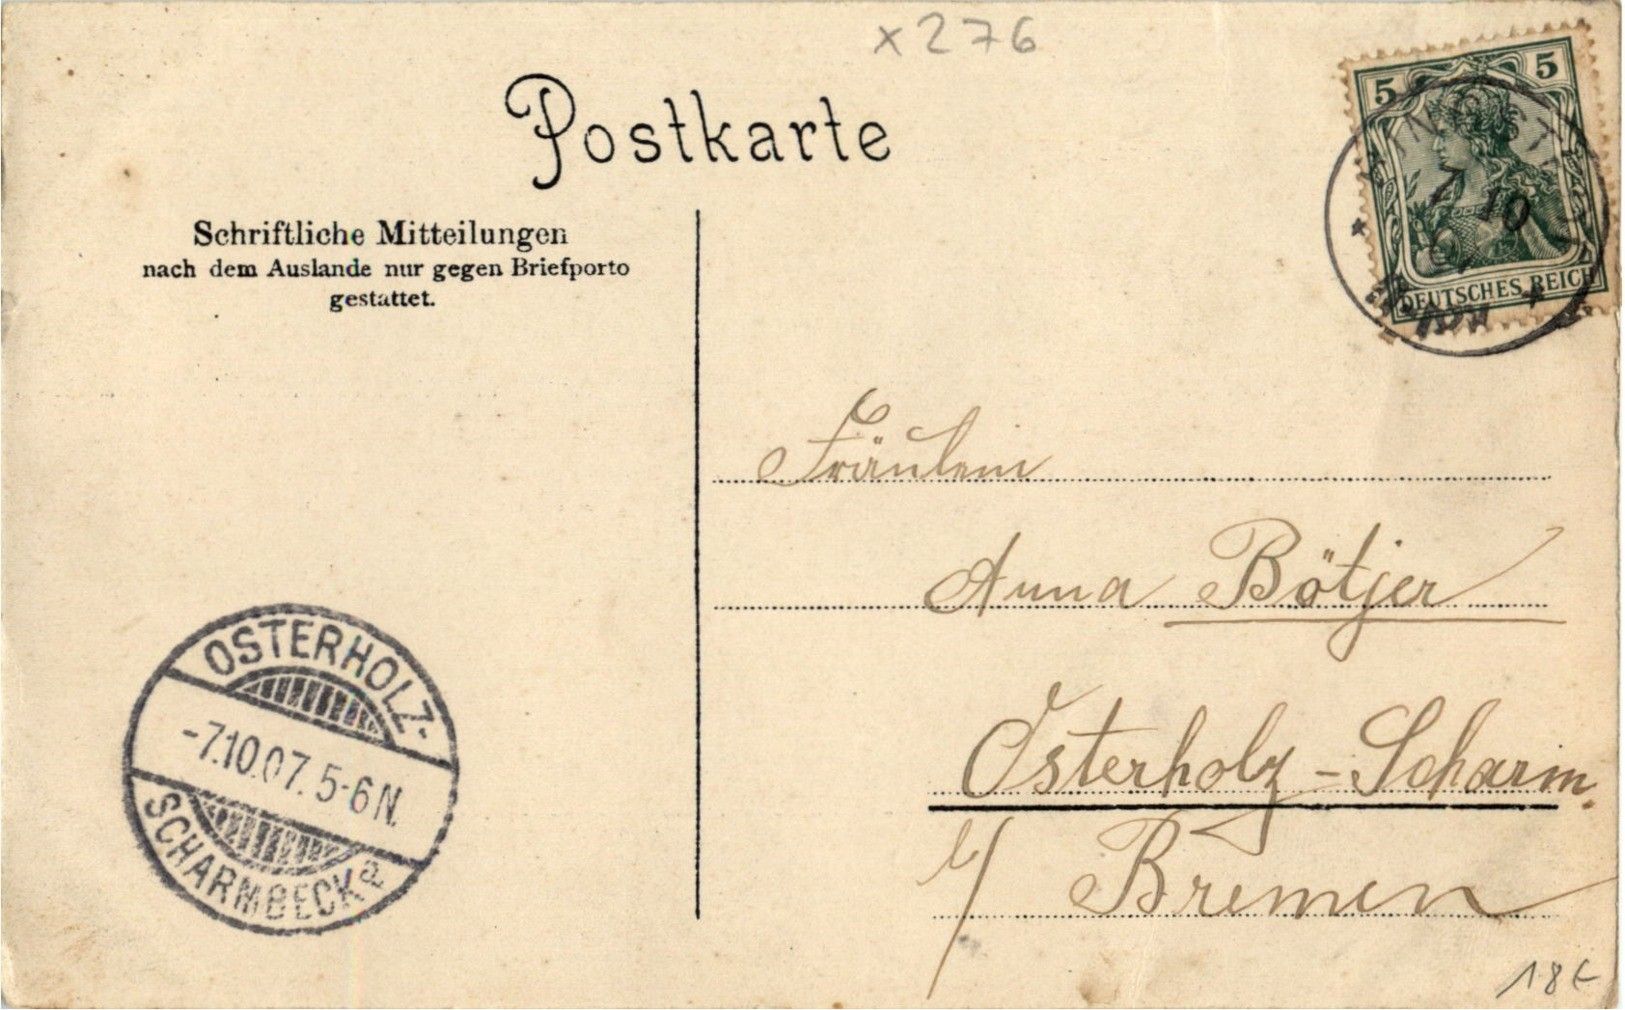 x 276
Postkarte
Schriftliche Mitteilungen
nach dem Auslande nur gegen Briefporto
gestattet.
5 5
7 10
DEUTSCHES REICH
Fräulein
Anna Bötjer
Osterholz-Scharm.
b/ Bremen
OSTERHOLZ-
-7.10.07. 5-6 N.
SCHARMBECK a
18€